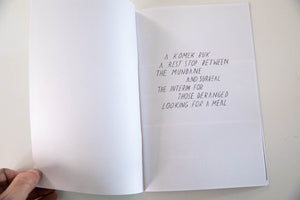 A KOMEK RUK
A REST STOP BETWEEN
THE MUNDANE
AND SURREAL
THE INTERIM FOR
THOSE DERANGED
LOOKING FOR A MEAL